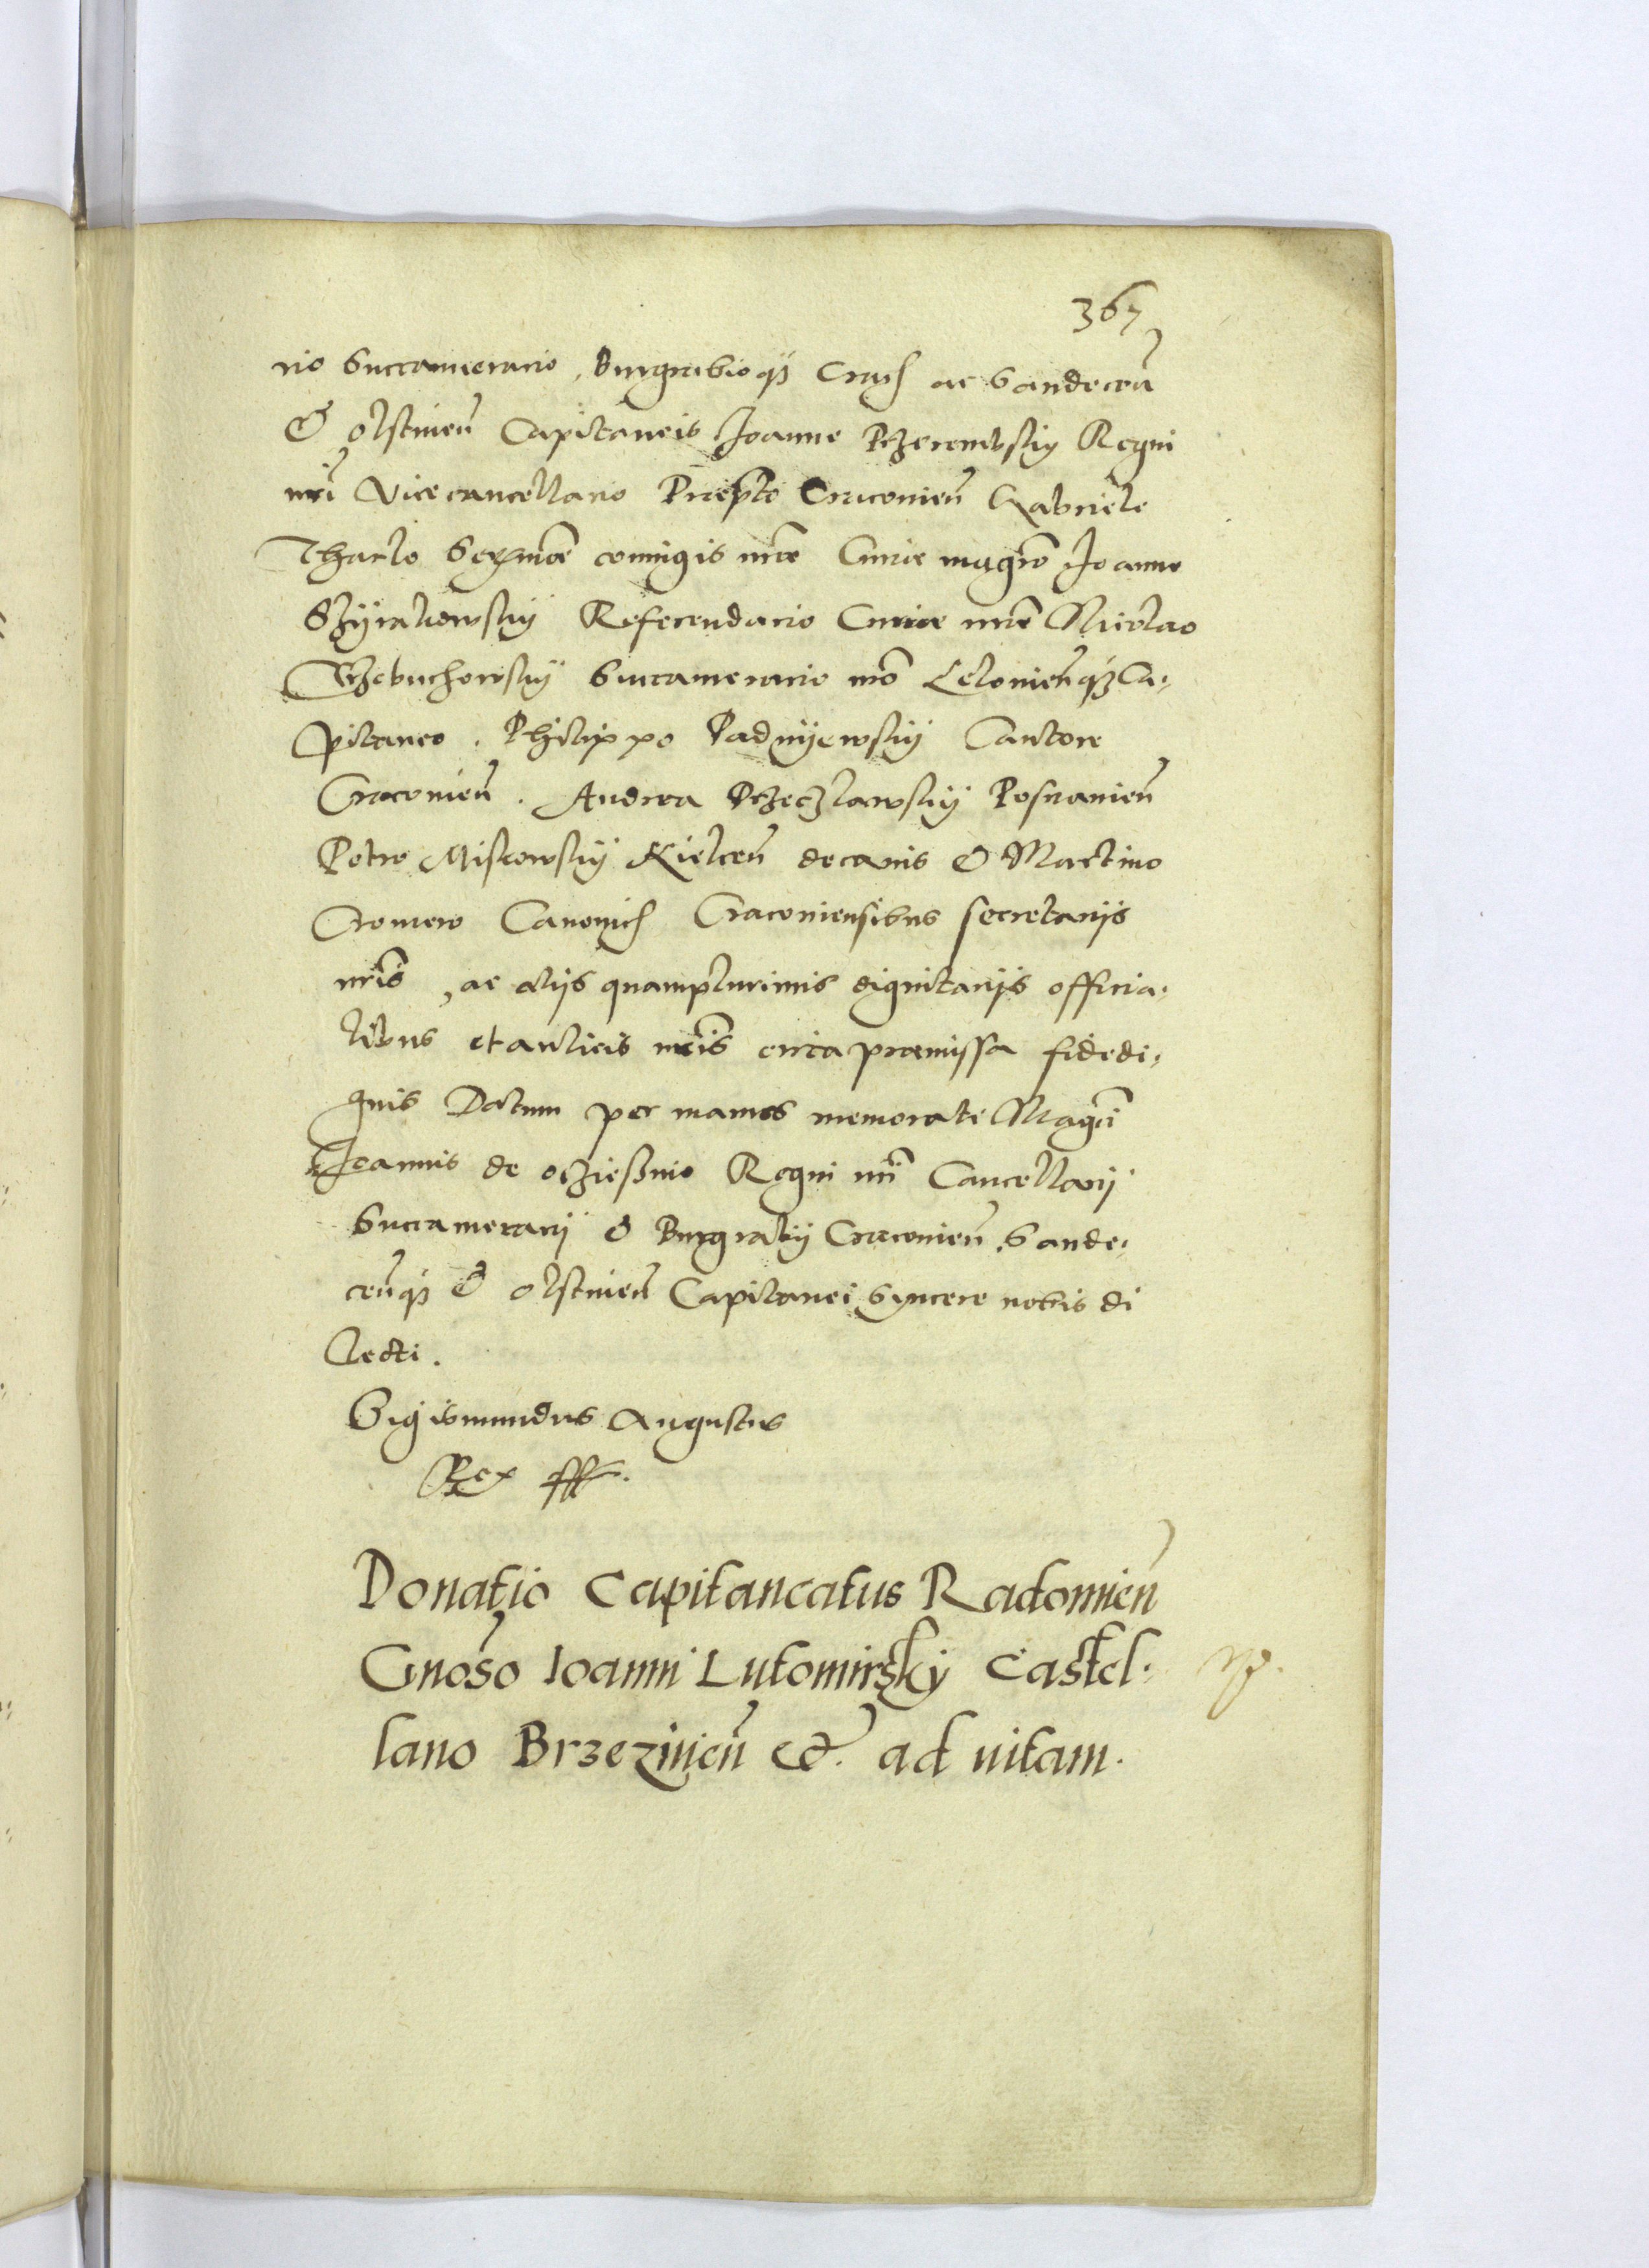 367
rio Succamerario, Burgrabioq̃ Crac̃ ac Sandeceñ
& olstineñ Capitaneis Joanne Przerembsky Regni
nr̃i Vicecancellario Praep̃to Cracovieñ Gabriele
Tharlo Ser̃me coniugis nr̃ae Curiae magr̃o Joanne
Szÿrakowskÿ Referendario Curiae nr̃e Nicolao
Trzebuchowskÿ Succamerario nr̃o Lelovieñq̃ Ca-
pitaneo. Philippo Padnÿewskÿ Cantore
Cracovieñ. Andrea Przeczlawskÿ Posnanieñ
Petro Miscowskÿ Kielceñ decanis & Martino
Cromero Canonic̃ Cracoviensibus secretarijs
nr̃is, ac alijs quamplurimis dignitarijs officia-
libus et aulicis nr̃is circa praemissa fidedi-
gnis Datum per manus memorati Mag̃ci
Joannis de ocziessino Regni nr̃i Cancellarij
Succamerarij & Burgrabij Cracovieñ, Sande-
ceñq̃ & olstineñ Capitanei Syncere nobis di
lecti.
Sigismundus Augustus
Rex sst.
Donatio Capitaneatus Radomieñ
Gnõso Ioanni Lutomirsky Castel-
lano Brzezineñ &. ad uitam.